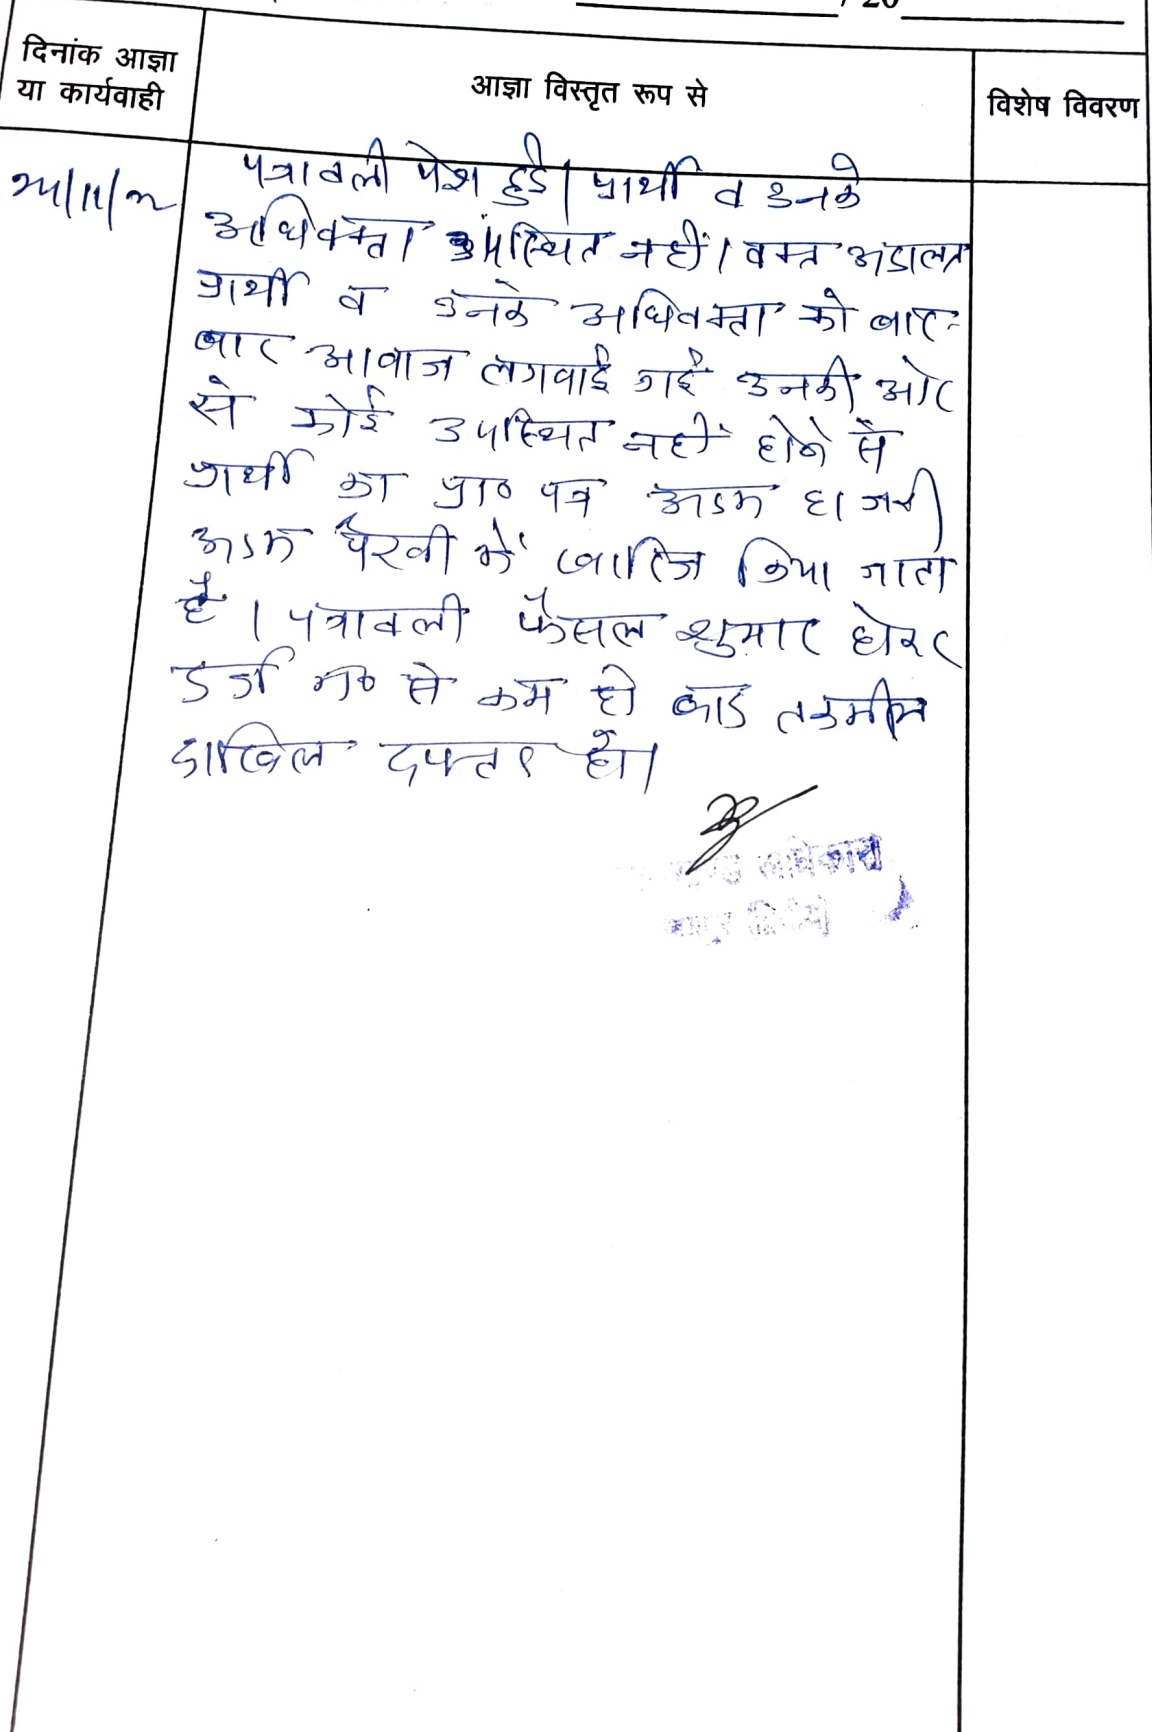 / 20
दिनांक आज्ञा
या कार्यवाही
आज्ञा विस्तृत रूप से
विशेष विवरण
पत्रावली पेश हुई। प्रार्थी व उनके
अधिवक्ता उपस्थित नहीं। वक्त अदालत
प्रार्थी व उनके अधिवक्ता को बार-
बार आवाज लगवाई गई उनकी ओर
से कोई उपस्थित नहीं होने से
प्रार्थी का प्रा० पत्र अदम हाजरी
अदम पैरवी में खारिज किया जाता
है। पत्रावली फैसल शुमार होकर
दर्ज न० से कम हो बाद तकमील
दाखिल दफ्तर हो।
अधिकारी